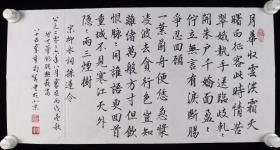 月華收雲淡霜天
曙西征客此時情苦
翠娥執手送臨歧軋軋
開朱户千嬌面盈盈
佇立無言有淚斷腸
爭忍回顧
一葉蘭舟便恁急槳
凌波去貪行色豈知
離緒萬般方寸但飲
恨脉脉同誰語更回首
重城不見寒江天外
隱隱兩三煙樹
宋柳永詞採蓮令